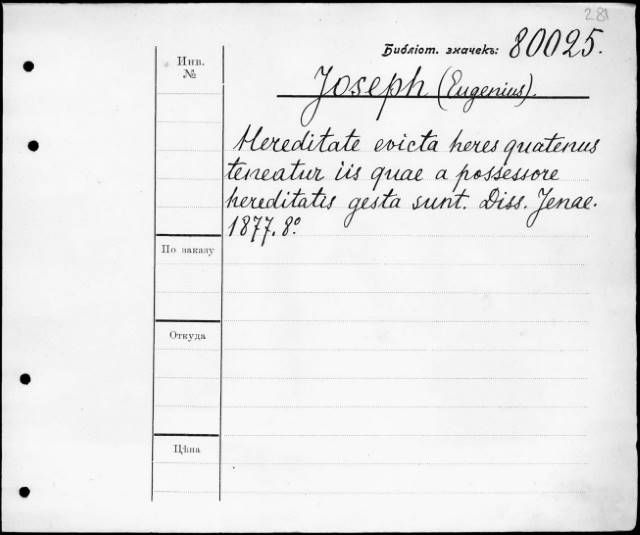 281
Библіот. значекъ: 80025.
Инв.
№
Joseph (Eugenius).
Hereditate evicta heres quatenus
teneatur iis quae a possessore
hereditatis gesta sunt. Diss. Jenae.
1877. 8.º
По заказу
Откуда
Цѣна